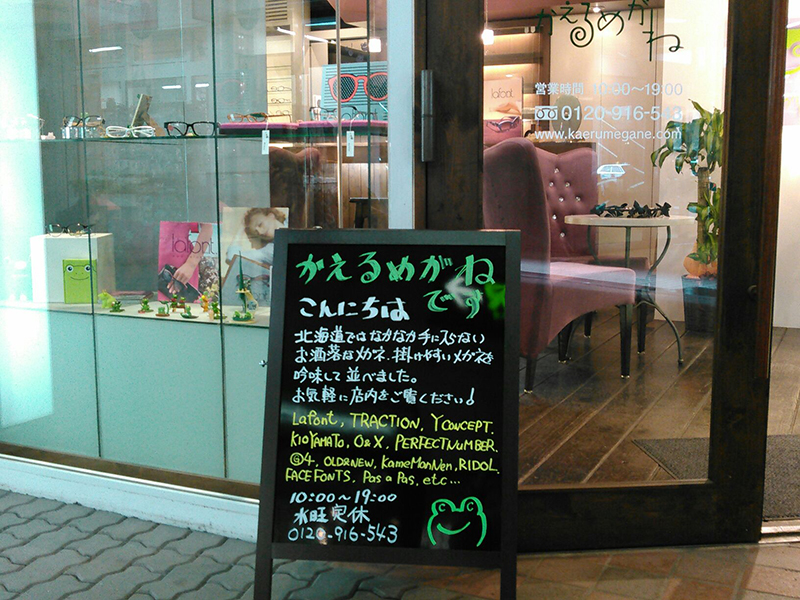 かえるめがね
営業時間 10:00〜19:00
0120-916-543
www.kaerumegane.com
lafont
lafont
かえるめがね
こんにちは です
北海道ではなかなか手に入らない
お洒落なメガネ、掛けやすいメガネを
吟味して並べました。
お気軽に店内をご覧ください!
Lafont, TRACTION, Y CONCEPT,
KIO YAMATO, O&X, PERFECT NUMBER,
@4, OLD&NEW, KameManNen, RIDOL,
FACE FONTS, Pas a Pas, etc...
10:00〜19:00
水旺定休
0120-916-543